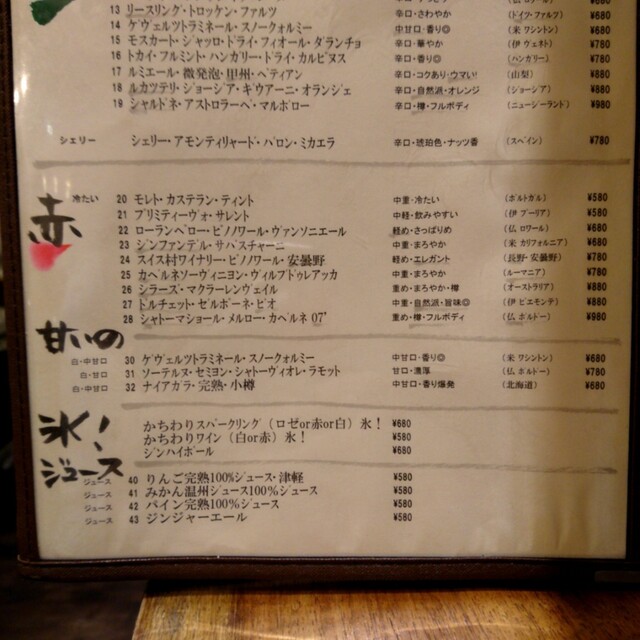 13 リースリング・トロッケン・ファルツ 辛口・さわやか (ドイツ・ファルツ) ¥680
14 ゲヴェルツトラミネール・スノークォルミー 中甘口・香り◎ (米 ワシントン) ¥680
15 モスカート・シャッロ・ドライ・フィオール・ダランチョ 辛口・華やか (伊 ヴェネト) ¥780
16 トカイ・フルミント・ハンガリー・ドライ・カルピヌス 辛口・香り◎ (ハンガリー) ¥780
17 ルミエール・微発泡・甲州・ペティアン 辛口・コクあり・ウマい! (山梨) ¥880
18 ルカツテリ・ジョージア・ギウアーニ・オランジェ 辛口・自然派・オレンジ (ジョージア) ¥880
19 シャルドネ・アストロラーベ・マルボロー 辛口・樽・フルボディ (ニュージーランド) ¥980
シェリー シェリー・アモンティリャード・バロン・ミカエラ 辛口・琥珀色・ナッツ香 (スペイン) ¥780
赤
冷たい 20 モレト・カステラン・ティント 中重・冷たい (ポルトガル) ¥580
21 プリミティーヴォ・サレント 中軽・飲みやすい (伊 プーリア) ¥580
22 ローランペロー・ピノノワール・ヴァンソニエール 軽め・さっぱりめ (仏 ロワール) ¥680
23 ジンファンデル・サバスチャーニ 中重・まろやか (米 カリフォルニア) ¥680
24 スイス村ワイナリー・ピノノワール・安曇野 軽め・エレガント (長野・安曇野) ¥780
25 カベルネソーヴィニヨン・ヴィルブドゥレアッカ 中重・まろやか (ルーマニア) ¥780
26 シラーズ・マクラーレンヴェイル 重め・まろやか・樽 (オーストラリア) ¥880
27 トルチェット・ゼルボーネ・ビオ 中重・自然派・旨味◎ (伊 ピエモンテ) ¥880
28 シャトーマショール・メルロー・カベルネ 07' 重め・樽・フルボディ (仏 ボルドー) ¥980
甘いの
白・中甘口 30 ゲヴェルツトラミネール・スノークォルミー 中甘口・香り◎ (米 ワシントン) ¥680
白・甘口 31 ソーテルヌ・セミヨン・シャトーヴィオレ・ラモット 甘口・濃厚 (仏 ボルドー) ¥780
白・中甘口 32 ナイアガラ・完熟・小樽 中甘口・香り爆発 (北海道) ¥680
氷!
かちわりスパークリング(ロゼor赤or白)氷! ¥680
かちわりワイン(白or赤)氷! ¥580
ジンハイボール ¥680
ジュース
ジュース 40 りんご完熟100%ジュース・津軽 ¥580
ジュース 41 みかん温州ジュース100%ジュース ¥580
ジュース 42 パイン完熟100%ジュース ¥580
ジュース 43 ジンジャーエール ¥580